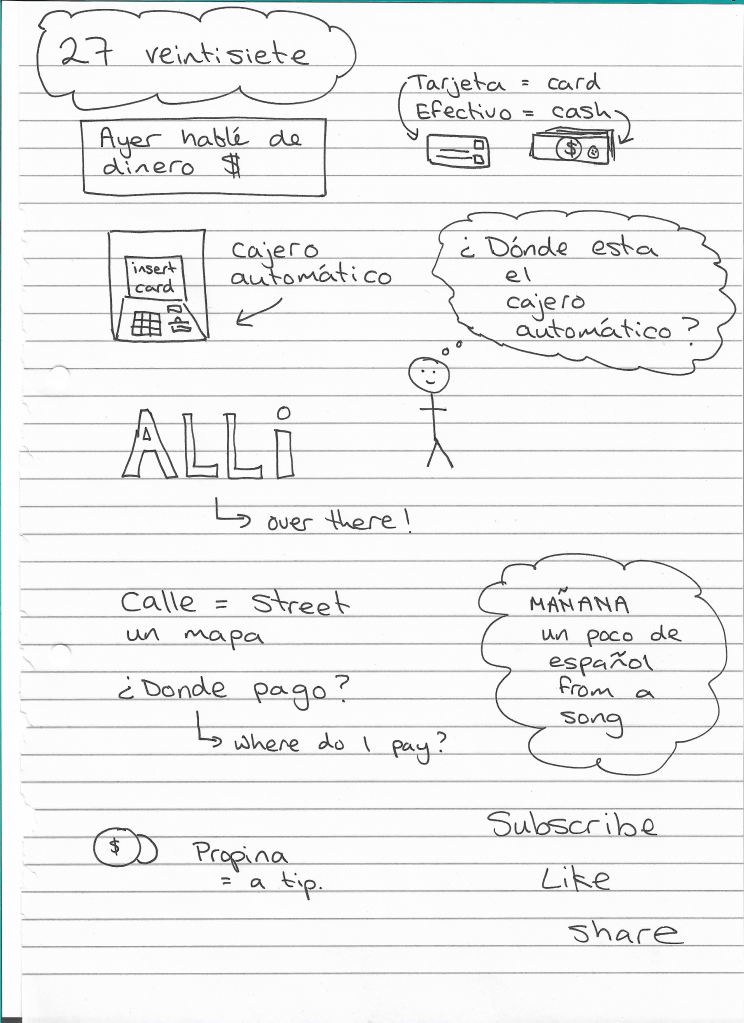 27 veintisiete
Tarjeta = card
Efectivo = cash
Ayer hablé de
dinero $
$
insert
card
cajero
automático
¿Dónde esta
el
cajero
automático?
ALLi
over there!
Calle = Street
un mapa
¿Donde pago?
where do I pay?
MAÑANA
un poco de
español
from a
song
$
Propina
= a tip.
Subscribe
Like
share